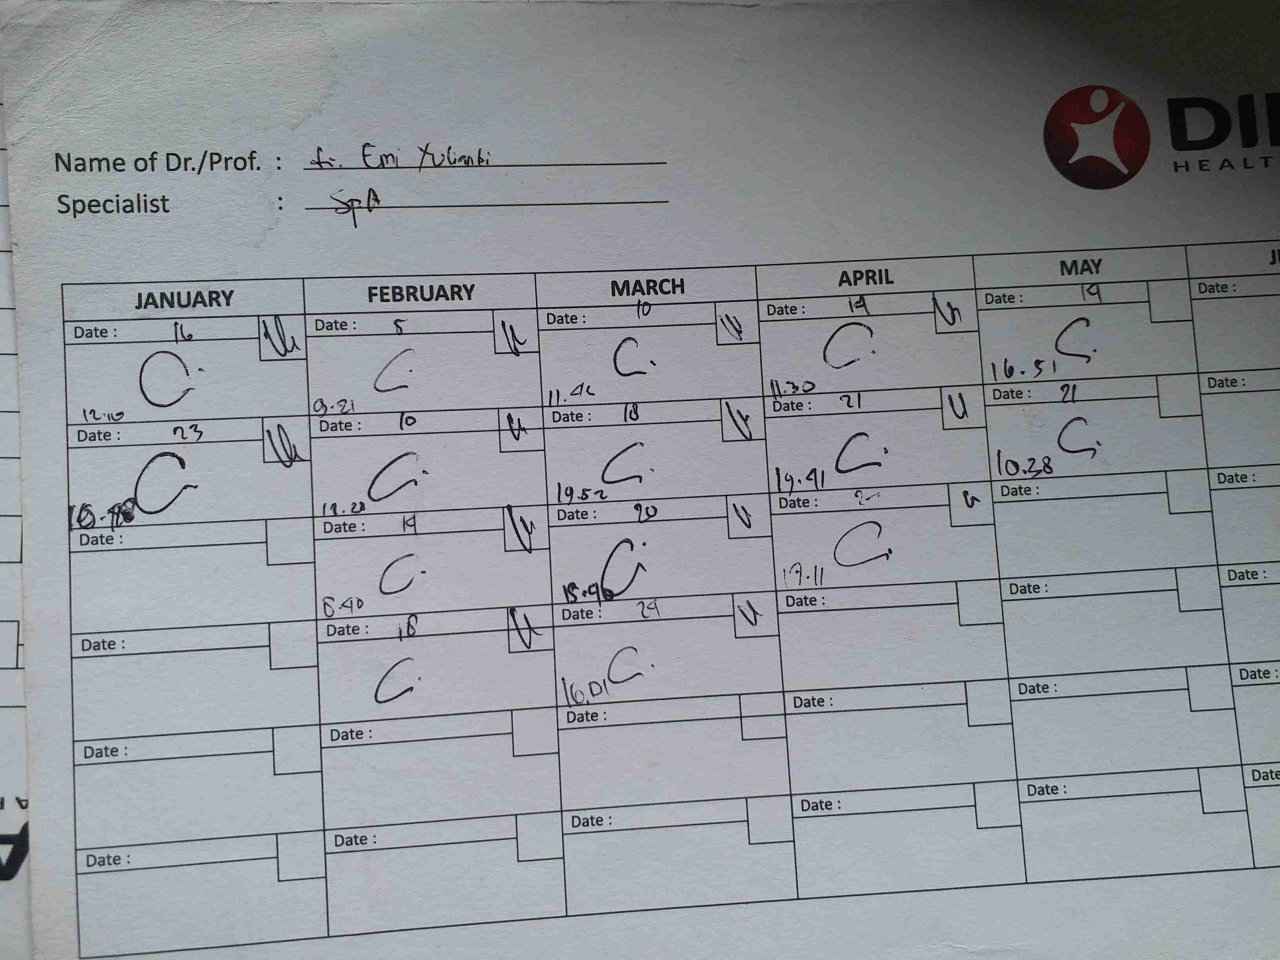 DI
HEALT
Name of Dr./Prof. : dr. Emi Yulianti
Specialist : SpA
JANUARY FEBRUARY MARCH APRIL MAY
Date : 16 Date : 5 Date : 10 Date : 14 Date : 19 Date :
12.10 9.21 11.42 11.30 16.51
Date : 23 Date : 10 Date : 18 Date : 21 Date : 21 Date :
19.52 19.41 10.38
Date : Date : 14 Date : 20 Date : Date : Date :
8.40 17.11
Date : Date : 18 Date : 24 Date : Date : Date :
16.01
Date : Date : Date : Date : Date : Date :
Date : Date : Date : Date : Date : Date